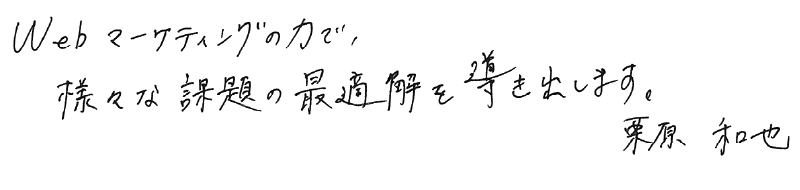 Webマーケティングの力で、
様々な課題の最適解を導き出します。
栗原 和也